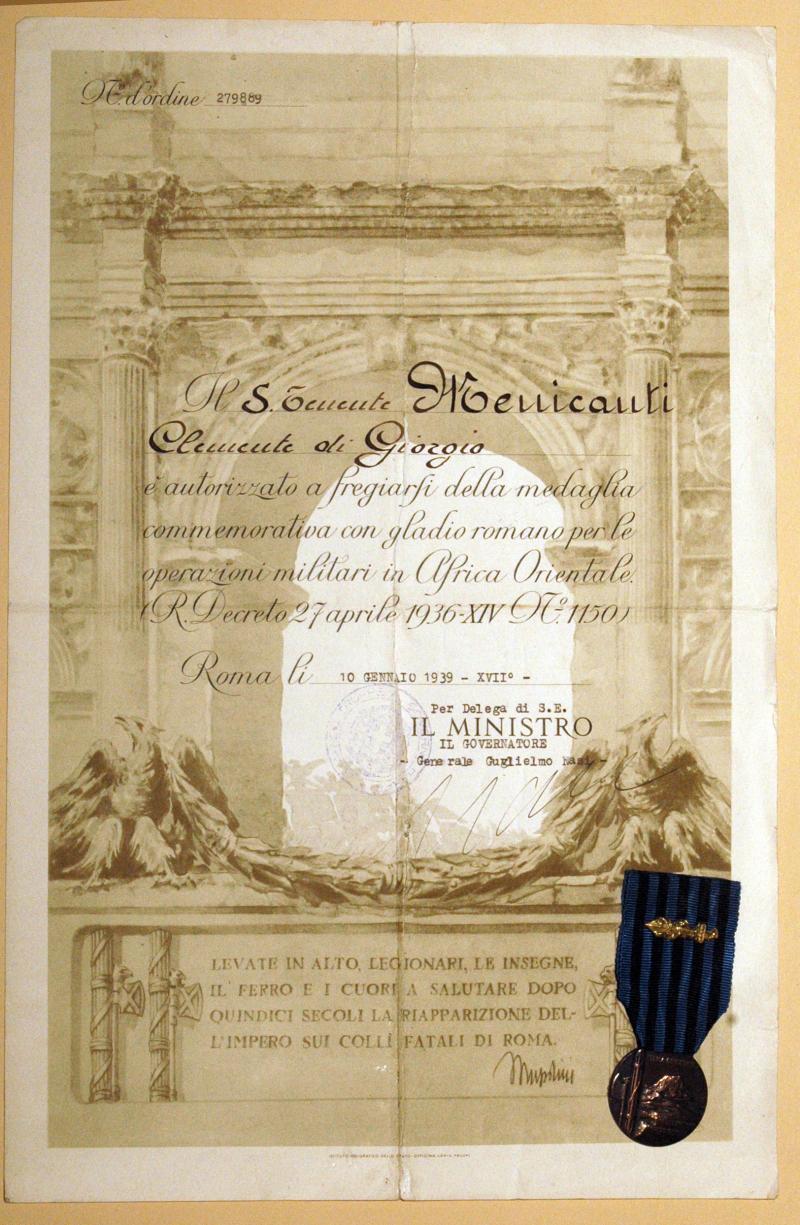 N.° d'ordine 279889
Il S. Tenente Menicanti
Clemente di Giorgio
è autorizzato a fregiarsi della medaglia
commemorativa con gladio romano per le
operazioni militari in Africa Orientale.
(R. Decreto 27 aprile 1936-XIV N.° 1150)
Roma li 10 GENNAIO 1939 - XVII° -
Per Delega di S.E.
IL MINISTRO
IL GOVERNATORE
- Generale Guglielmo Nasi -
LEVATE IN ALTO, LEGIONARI, LE INSEGNE,
IL FERRO E I CUORI A SALUTARE DOPO
QUINDICI SECOLI LA RIAPPARIZIONE DEL-
L'IMPERO SUI COLLI FATALI DI ROMA.
Mussolini